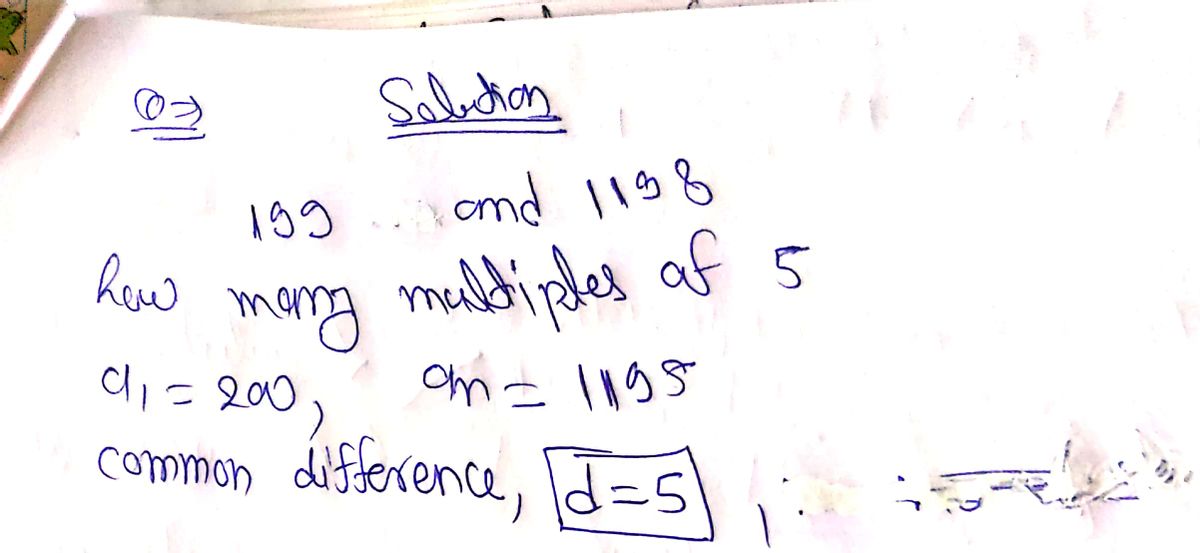 Q⇒ Solution
199 and 1198
how many multiples of 5
a₁ = 200, an = 1195
common difference, d=5,